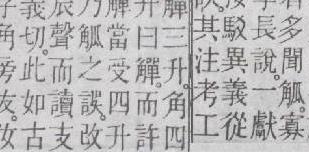 多聞觚。寡
長說。一獻
駁異義從
其注考工
觶三升。角四
升曰觶。而許
觶當受四升
乃觚之誤。改
辰聲而讀支
義切。此如古
角旁友。汝